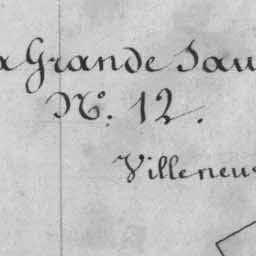 a Grande Sau
N.º 12.
Villeneu